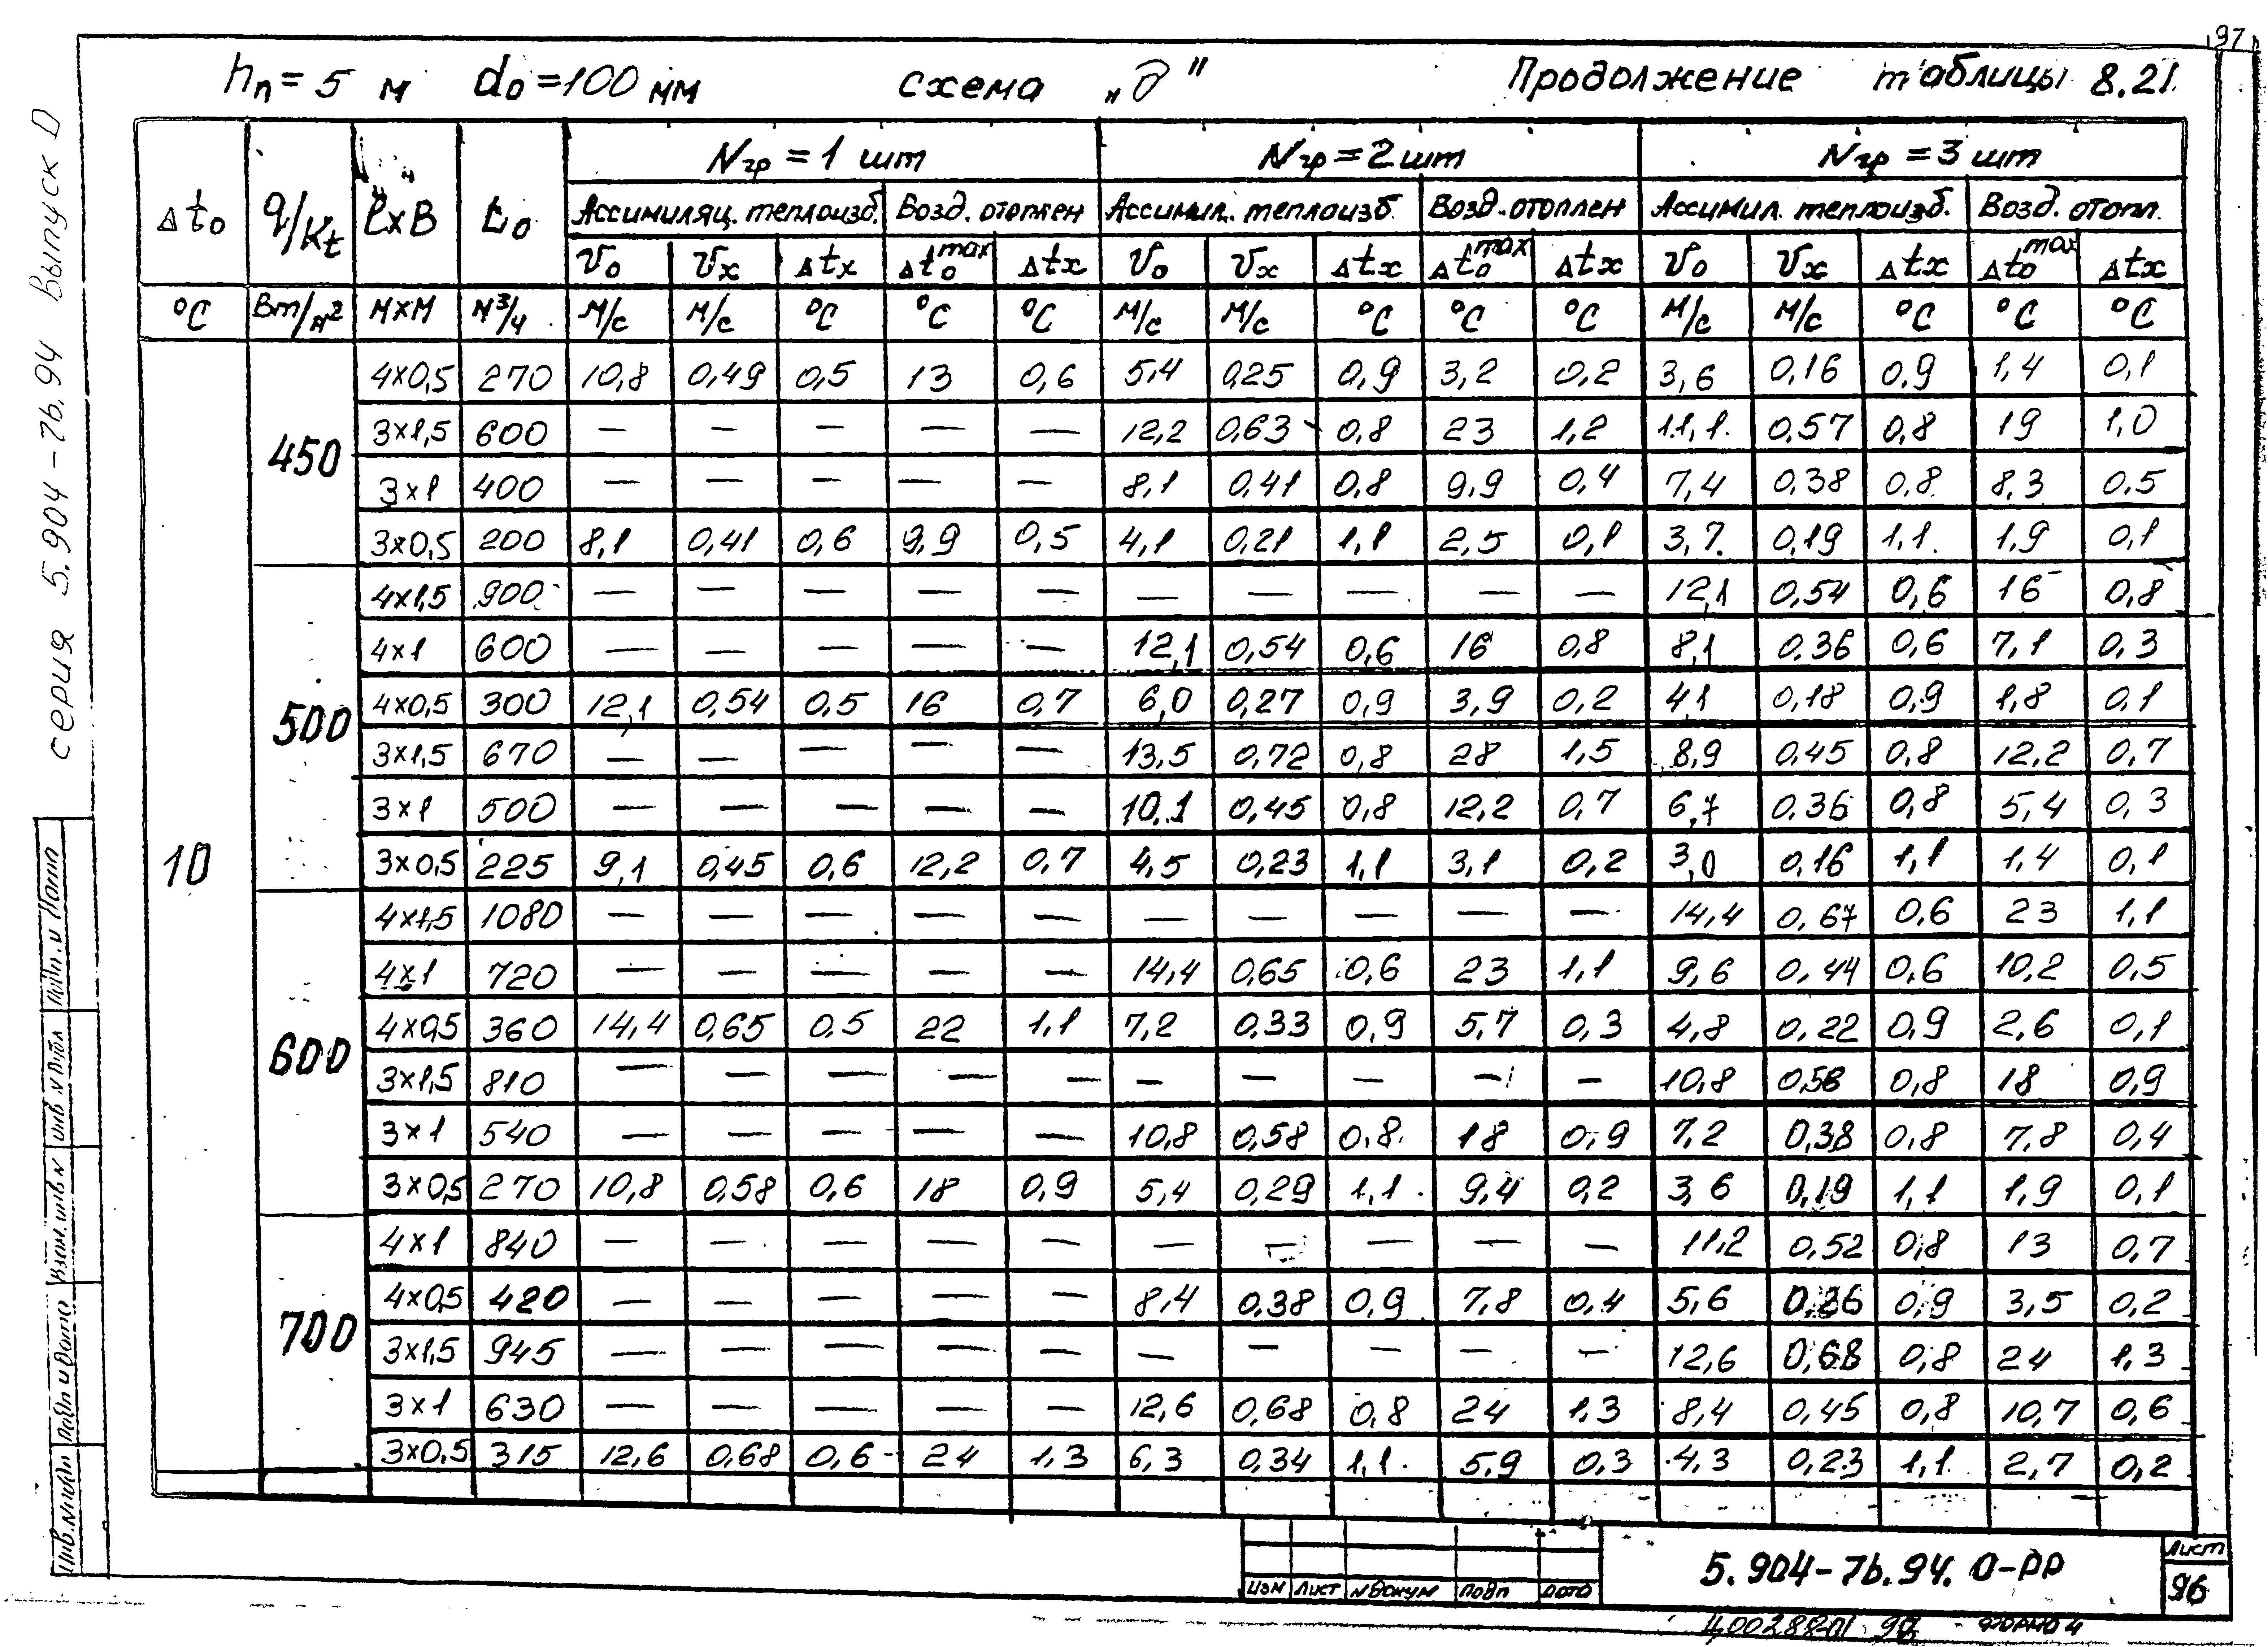 97
hп = 5 м d₀ = 100 мм схема „д" Продолжение таблицы 8.21
Δt₀ q/Kt ℓхВ L₀ Nгр = 1 шт Nгр = 2 шт Nгр = 3 шт
Ассимиляц. теплоизб. Возд. отоплен Ассимил. теплоизб Возд. отоплен Ассимил. теплоизб. Возд. отопл.
V₀ Vx Δtx Δt₀max Δtx V₀ Vx Δtx Δt₀max Δtx V₀ Vx Δtx Δt₀max Δtx
°С Вт/м² МхМ м³/ч м/с м/с °С °С °С м/с м/с °С °С °С м/с м/с °С °С °С
10
450
4х0,5 270 10,8 0,49 0,5 13 0,6 5,4 0,25 0,9 3,2 0,2 3,6 0,16 0,9 1,4 0,1
3х1,5 600 — — — — — 12,2 0,63 0,8 23 1,2 11,1 0,57 0,8 19 1,0
3х1 400 — — — — — 8,1 0,41 0,8 9,9 0,4 7,4 0,38 0,8 8,3 0,5
3х0,5 200 8,1 0,41 0,6 9,9 0,5 4,1 0,21 1,1 2,5 0,1 3,7 0,19 1,1 1,9 0,1
500
4х1,5 900 — — — — — — — — — — 12,1 0,54 0,6 16 0,8
4х1 600 — — — — — 12,1 0,54 0,6 16 0,8 8,1 0,36 0,6 7,1 0,3
4х0,5 300 12,1 0,54 0,5 16 0,7 6,0 0,27 0,9 3,9 0,2 4,1 0,18 0,9 1,8 0,1
3х1,5 670 — — — — — 13,5 0,72 0,8 28 1,5 8,9 0,45 0,8 12,2 0,7
3х1 500 — — — — — 10,1 0,45 0,8 12,2 0,7 6,7 0,36 0,8 5,4 0,3
3х0,5 225 9,1 0,45 0,6 12,2 0,7 4,5 0,23 1,1 3,1 0,2 3,0 0,16 1,1 1,4 0,1
600
4х1,5 1080 — — — — — — — — — — 14,4 0,67 0,6 23 1,1
4х1 720 — — — — — 14,4 0,65 0,6 23 1,1 9,6 0,44 0,6 10,2 0,5
4х0,5 360 14,4 0,65 0,5 22 1,1 7,2 0,33 0,9 5,7 0,3 4,8 0,22 0,9 2,6 0,1
3х1,5 810 — — — — — — — — — — 10,8 0,58 0,8 18 0,9
3х1 540 — — — — — 10,8 0,58 0,8 18 0,9 7,2 0,38 0,8 7,8 0,4
3х0,5 270 10,8 0,58 0,6 18 0,9 5,4 0,29 1,1 9,4 0,2 3,6 0,19 1,1 1,9 0,1
700
4х1 840 — — — — — — — — — — 11,2 0,52 0,8 13 0,7
4х0,5 420 — — — — — 8,4 0,38 0,9 7,8 0,4 5,6 0,26 0,9 3,5 0,2
3х1,5 945 — — — — — — — — — — 12,6 0,68 0,8 24 1,3
3х1 630 — — — — — 12,6 0,68 0,8 24 1,3 8,4 0,45 0,8 10,7 0,6
3х0,5 315 12,6 0,68 0,6 24 1,3 6,3 0,34 1,1 5,9 0,3 4,3 0,23 1,1 2,7 0,2
серия 5.904-76.94 Выпуск 0
Инв. N подл Подп и дата Взам. инв. N Инв N дубл Подп. и дата
Изм Лист N докум Подп Дата
5.904-76.94. 0-РР
Лист
96
400288-01 98 формат 4